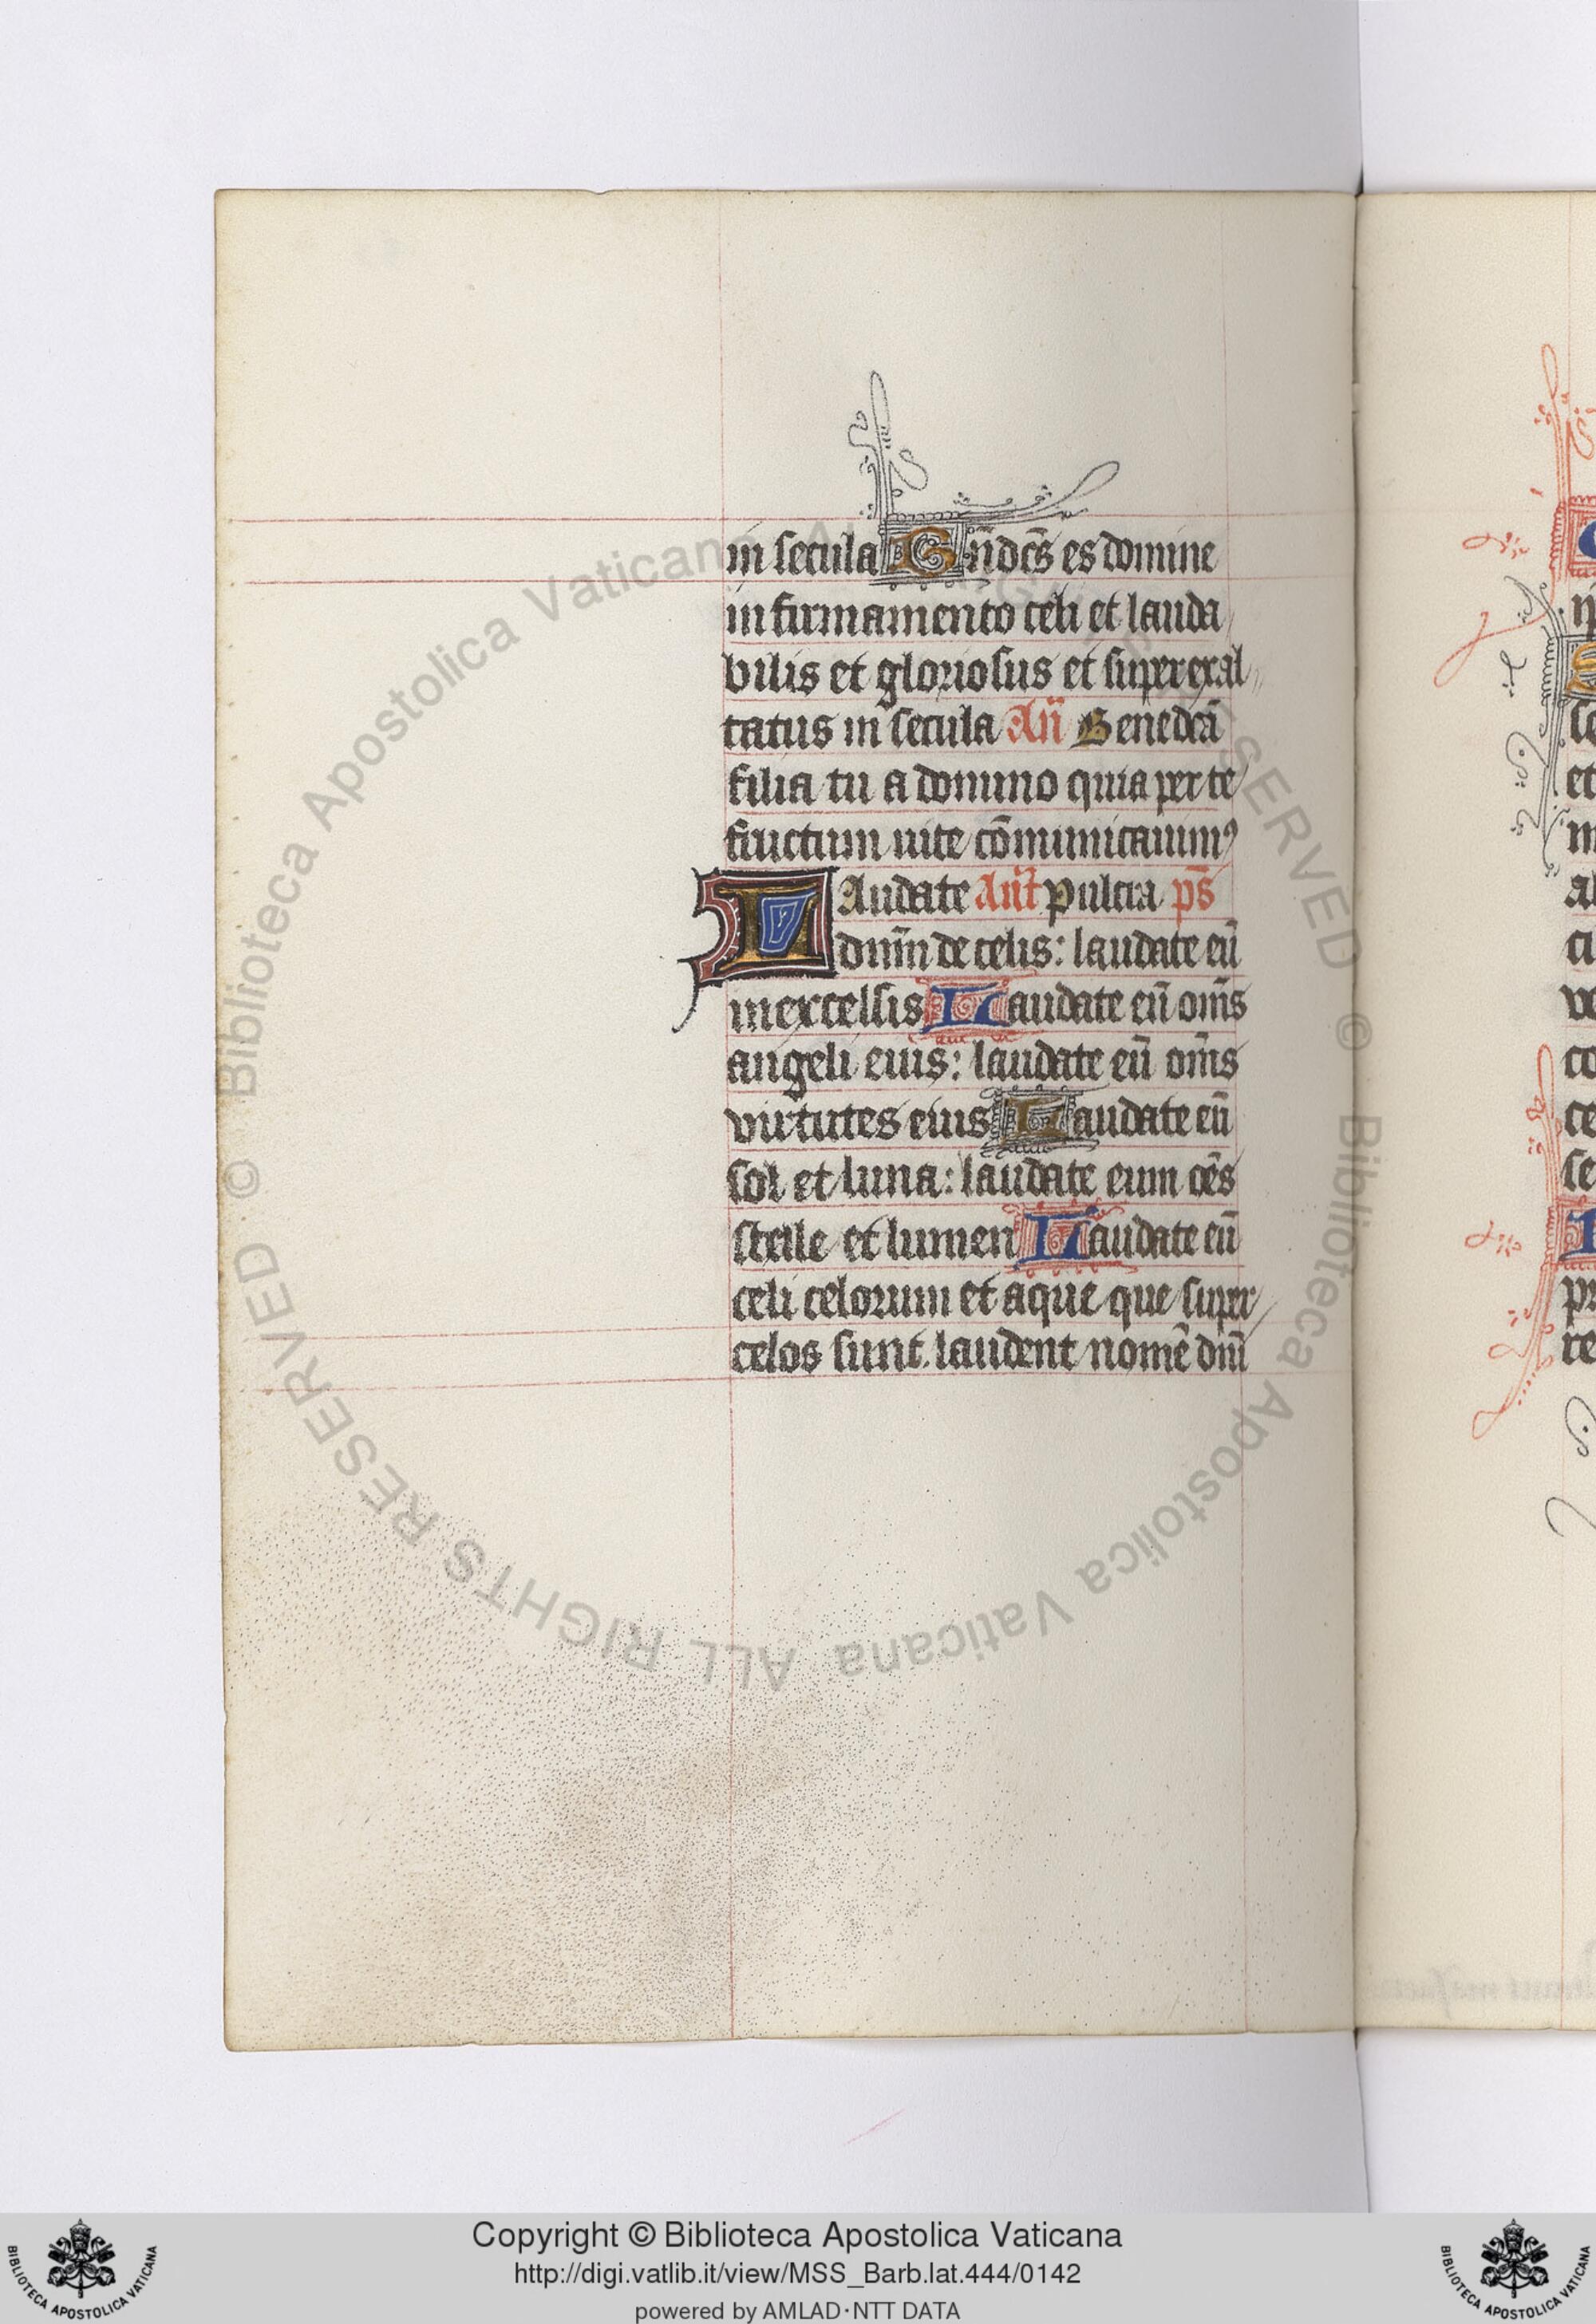 in secula Bn̄dcs̄ es domine
in firmamento celi et lauda
bilis et gloriosus et superexal
tatus in secula Añ Benedcā
filia tu a domino quia per te
fructum uite cōmunicauimꝰ
LAudate Añt pulcra ps̄
dnm̄ de celis: laudate eū
in excelsis Laudate eū oms̄
angeli eius: laudate eū oms̄
virtutes eius Laudate eū
sol et luna: laudate eum oēs
stelle et lumen Laudate eū
celi celorum et aque que super
celos sunt laudent nomē dnī
© Biblioteca Apostolica Vaticana ALL RIGHTS RESERVED © Biblioteca Apostolica Vaticana ALL RIGHTS RESERVED
Copyright © Biblioteca Apostolica Vaticana
http://digi.vatlib.it/view/MSS_Barb.lat.444/0142
powered by AMLAD·NTT DATA
BIBLIOTECA APOSTOLICA VATICANA
BIBLIOTECA APOSTOLICA VATICANA